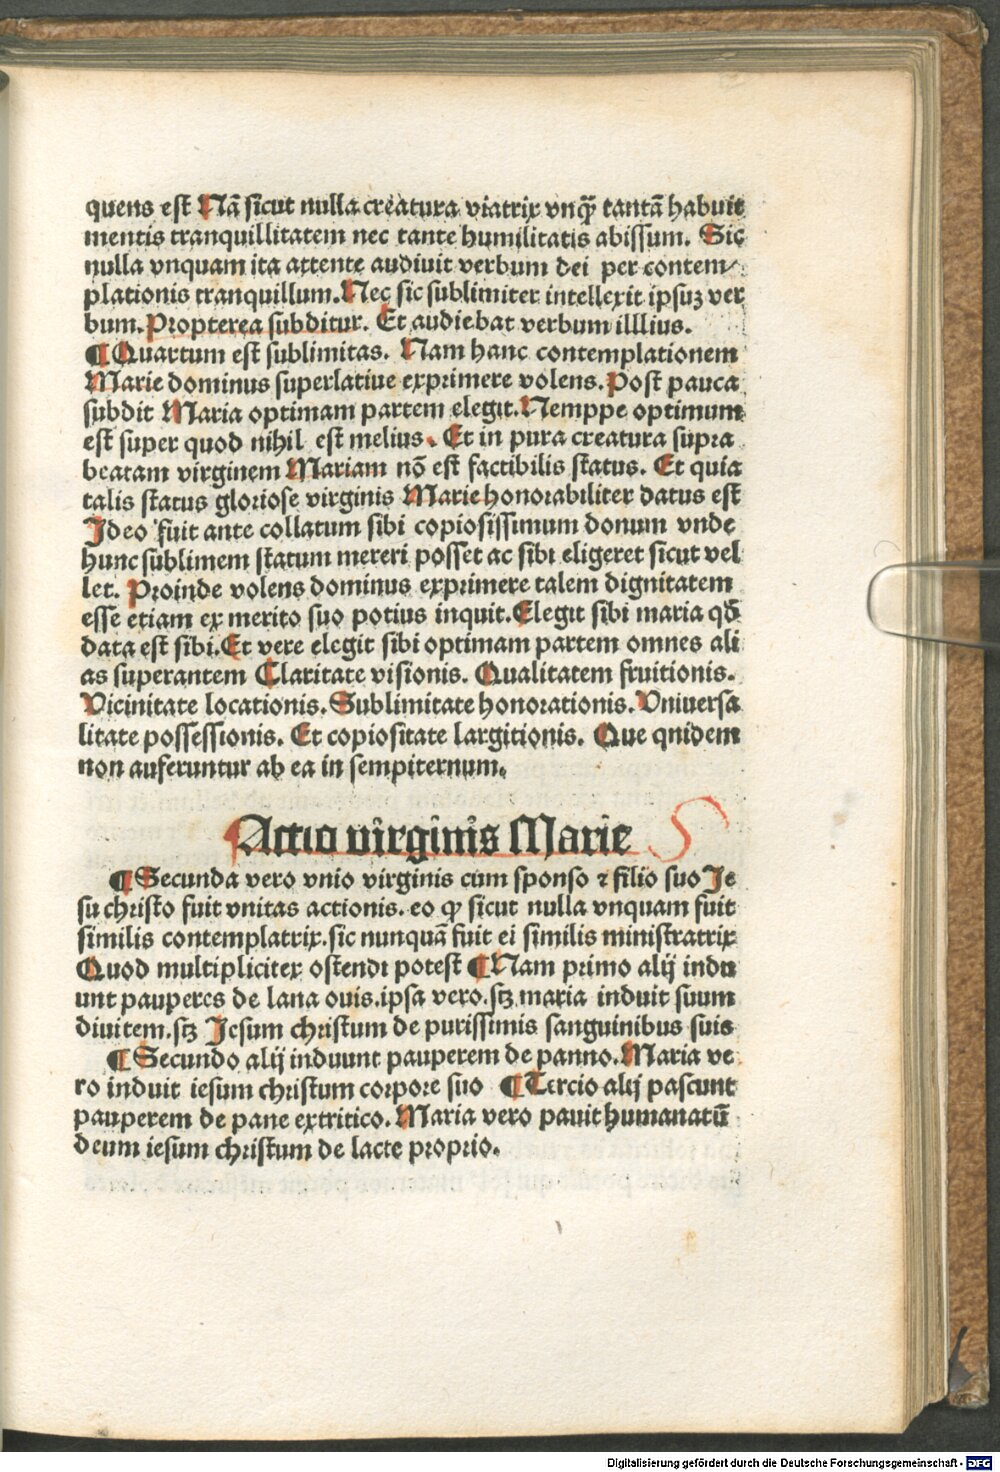 quens est Nã sicut nulla creatura viatrix vnqꝫ̃ tantã habuit
mentis tranquillitatem nec tante humilitatis abissum. Sic
nulla vnquam ita attente audiuit verbum dei per contem⸗
plationis tranquillum. Nec sic sublimiter intellexit ipsuꝫ ver
bum. Propterea subditur. Et audiebat verbum illlius.
¶ Quartum est sublimitas. Nam hanc contemplationem
Marie dominus superlatiue exprimere volens. Post pauca
subdit Maria optimam partem elegit. Nemppe optimum
est super quod nihil est melius. Et in pura creatura supra
beatam virginem Mariam nõ est factibilis status. Et quia
talis status gloriose virginis Marie honorabiliter datus est
Ideo fuit ante collatum sibi copiosissimum donum vnde
hunc sublimem statum mereri posset ac sibi eligeret sicut vel
let. Proinde volens dominus exprimere talem dignitatem
esse etiam ex merito suo potius inquit. Elegit sibi maria qđ
data est sibi. Et vere elegit sibi optimam partem omnes ali
as superantem Claritate visionis. Qualitatem fruitionis.
Vicinitate locationis. Sublimitate honorationis. Vniuersa
litate possessionis. Et copiositate largitionis. Que qnidem
non auferuntur ab ea in sempiternum.
Actio virginis Marie
¶ Secunda vero vnio virginis cum sponso ⁊ filio suo Je
su christo fuit vnitas actionis. eo ꝙ sicut nulla vnquam fuit
similis contemplatrix. sic nunquã fuit ei similis ministratrix
Quod multipliciter ostendi potest ¶ Nam primo alij indu
unt pauperes de lana ouis. ipsa vero. sꝫ maria induit suum
diuitem. sꝫ Jesum christum de purissimis sanguinibus suis
¶ Secundo alij induunt pauperem de panno. Maria ve
ro induit iesum christum corpore suo ¶ Tercio alij pascunt
pauperem de pane extritico. Maria vero pauit humanatũ
deum iesum christum de lacte proprio.
Digitalisierung gefördert durch die Deutsche Forschungsgemeinschaft - DFG